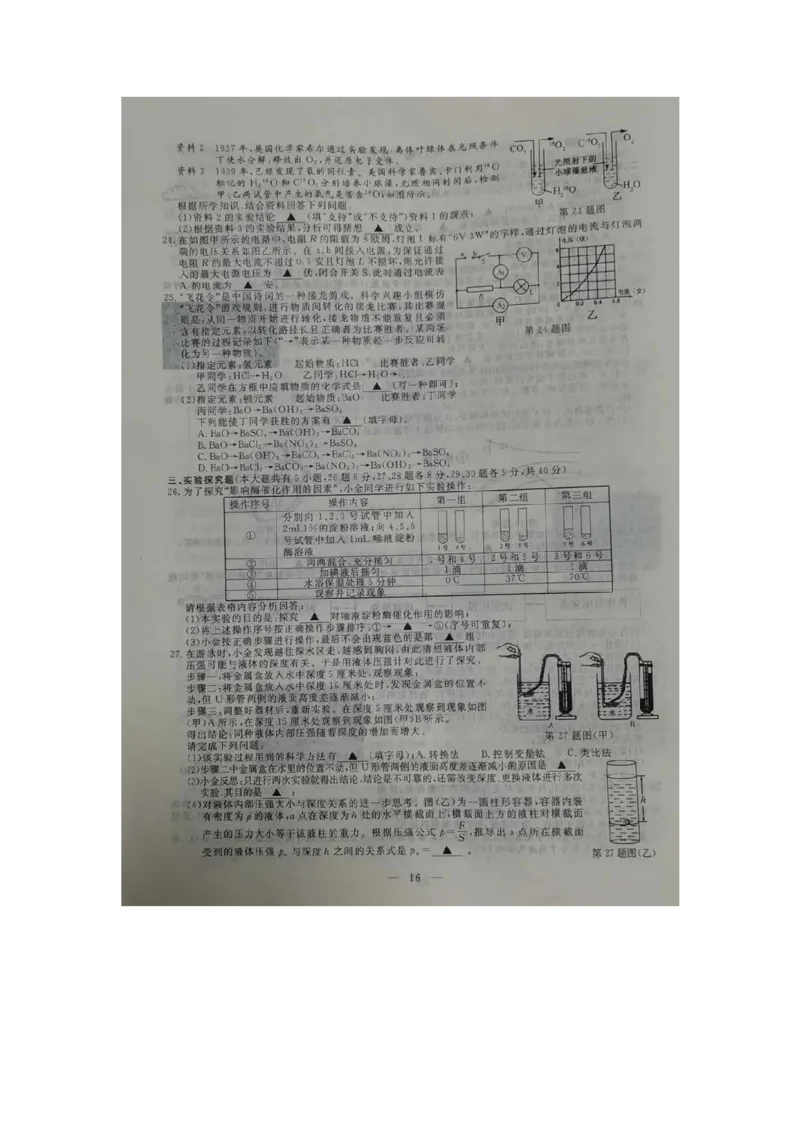 资料2 1937年,英国化学家希尔通过实验发现:离体叶绿体在光照条件
下使水分解,释放出O₂,并还原电子受体。
资料3 1939年,已经发现了氧的同位素。美国科学家鲁宾、卡门利用¹⁸O
标记的H₂¹⁸O和C¹⁸O₂分别培养小球藻,光照相同时间后,检测
甲、乙两试管中产生的氧气是否含¹⁸O,如图所示。
CO₂ ¹⁸O₂ C¹⁸O₂ O₂
光照射下的
小球藻悬液
H₂¹⁸O H₂O
甲 乙
第23题图
根据所学知识,结合资料回答下列问题:
(1)资料2的实验结论 ▲ (填“支持”或“不支持”)资料1的观点;
(2)根据资料3的实验结果,分析可得猜想 ▲ 成立。
24.在如图甲所示的电路中,电阻R的阻值为 欧姆,灯泡L标有“6V 3W”的字样,通过灯泡的电流与灯泡两
端的电压关系如图乙所示。在a、b间接入电源,为保证通过
电阻R的最大电流不超过0.5安且灯泡L不损坏,则允许接
入的最大电源电压为 ▲ 伏,闭合开关S,此时通过电流表
A 的电流为 ▲ 安。
电压(伏)
电流(安)
0 0.2 0.4 0.6
a b S V
A₁
R L
A₂
甲 乙
第24题图
25.“飞花令”是中国诗词的一种接龙游戏。科学兴趣小组模仿
“飞花令”的戏规则,进行物质间转化的接龙比赛,其比赛规
则是:从同一物质开始进行转化,接龙物质不能重复且必须
含有指定元素,以转化路径长且正确者为比赛胜者。某两场
比赛的过程记录如下(“→”表示某一种物质经一步反应可转
化为另一种物质)。
(1)指定元素:氢元素 起始物质:HCl 比赛胜者:乙同学
甲同学:HCl→H₂O 乙同学:HCl→H₂O→
乙同学在方框中应填物质的化学式是 ▲ (写一种即可);
(2)指定元素:钡元素 起始物质:BaO 比赛胜者:丁同学
丙同学:BaO→Ba(OH)₂→BaSO₄
下列能使丁同学获胜的方案有 ▲ (填字母)。
A.BaO→BaSO₄→Ba(OH)₂→BaCO₃
B.BaO→BaCl₂→Ba(NO₃)₂→BaSO₄
C.BaO→Ba(OH)₂→BaCO₃→BaCl₂→Ba(NO₃)₂→BaSO₄
D.BaO→BaCl₂→BaCO₃→Ba(NO₃)₂→Ba(OH)₂→BaSO₄
三、实验探究题(本大题共有5小题,26题6分,27、28题各8分,29、30题各9分,共40分)
26.为了探究“影响酶催化作用的因素”,小金同学进行如下实验操作:
操作序号 操作内容 第一组 第二组 第三组
① 分别向1、2、3号试管中加入
2mL1%的淀粉溶液;向4、5、6
号试管中加入1mL唾液淀粉
酶溶液
1号 4号 2号 5号 3号 6号
② 两两混合,充分摇匀 1号和4号 2号和5号 3号和6号
③ 加碘液后摇匀 1滴 1滴 1滴
④ 水浴保温处理5分钟 0℃ 37℃ 70℃
⑤ 观察并记录现象
请根据表格内容分析回答:
(1)本实验的目的是:探究 ▲ 对唾液淀粉酶催化作用的影响;
(2)将上述操作序号按正确操作步骤排序:①→ ▲ →⑤(序号可重复);
(3)小金按正确步骤进行操作,最后不会出现蓝色的是第 ▲ 组。
27.在游泳时,小金发现越往深水区走,越感到胸闷,由此猜想液体内部
压强可能与液体的深度有关。于是用液体压强计对此进行了探究。
步骤一:将金属盒放入水中深度5厘米处,观察现象;
步骤二:将金属盒放入水中深度15厘米处时,发现金属盒的位置不
动,但U形管两侧的液面高度差逐渐减小;
步骤三:调整好器材后,重新实验。在深度5厘米处观察到现象如图
(甲)A所示,在深度15厘米处观察到现象如图(甲)B所示。
得出结论:同种液体内部压强随着深度的增加而增大。
水 水
A B
第27题图(甲)
请完成下列问题:
(1)该实验过程用到的科学方法有 ▲ (填字母);A.转换法 B.控制变量法 C.类比法
(2)步骤二中金属盒在水里的位置不动,但U形管两侧的液面高度差逐渐减小的原因是 ▲ ;
(3)小金反思:只进行两次实验就得出结论,结论是不可靠的,还需改变深度、更换液体进行多次
实验,其目的是 ▲ ;
(4)对液体内部压强大小与深度关系的进一步思考。图(乙)为一圆柱形容器,容器内装
有密度为ρ的液体,a点在深度为h处的水平横截面上,横截面上方的液柱对横截面
产生的压力大小等于该液柱的重力。根据压强公式p=F/S,推导出a点所在横截面
受到的液体压强pₐ与深度h之间的关系式是pₐ= ▲ 。
h
第27题图(乙)
— 16 —